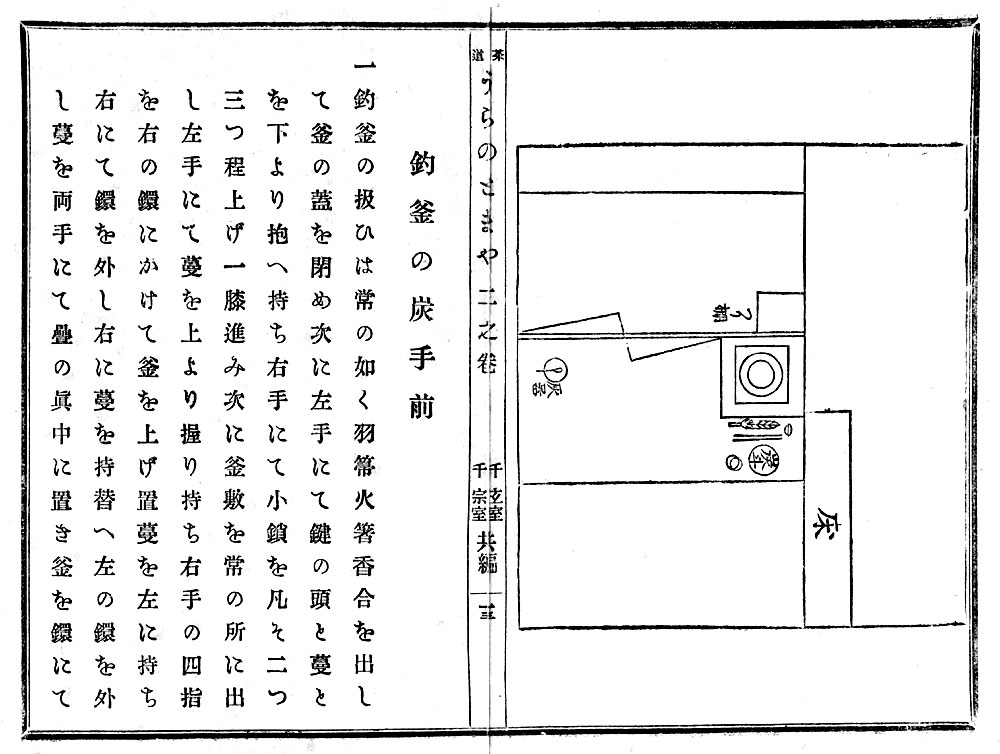 床
炭斗
灰器
茶道
うらのとまや二之卷
千玄室
千宗室
共編
一三
釣釜の炭手前
一釣釜の扱ひは常の如く羽箒火箸香合を出し
て釜の蓋を閉め次に左手にて鍵の頭と蔓と
を下より抱へ持ち右手にて小鎖を凡そ二つ
三つ程上げ一膝進み次に釜敷を常の所に出
し左手にて蔓を上より握り持ち右手の四指
を右の鐶にかけて釜を上げ置蔓を左に持ち
右にて鐶を外し右に蔓を持替へ左の鐶を外
し蔓を両手にて疊の眞中に置き釜を鐶にて